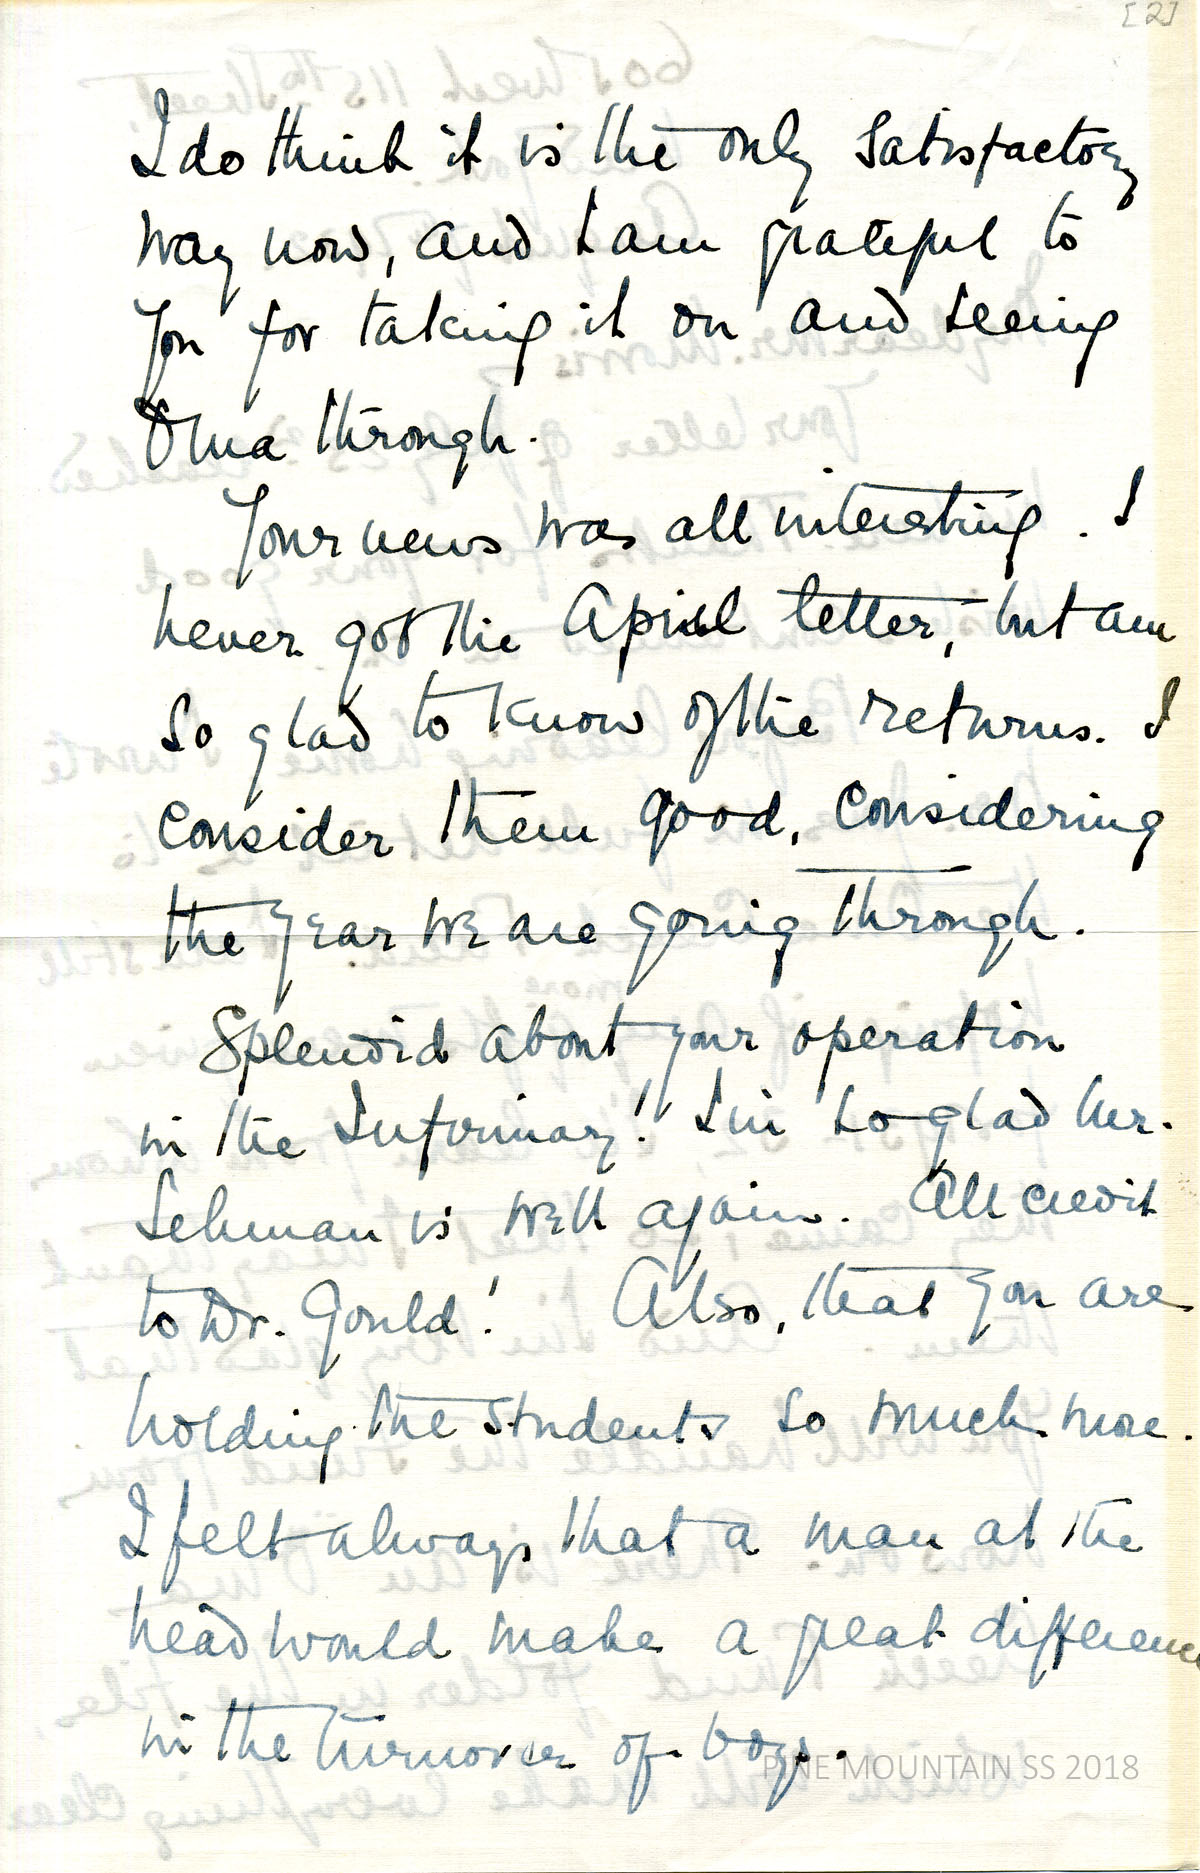 [2]
I do think it is the only satisfactory
way now, and I am grateful to
you for taking it on and seeing
Oma through.
Your news was all interesting. I
never got the April letter, but am
so glad to know of the returns. I
consider them good, considering
the year we are going through.
Splendid about your operation
in the Infirmary! I'm so glad Mr.
Lehman is well again. All credit
to Dr. Gould! Also, that you are
holding the students so much more.
I felt always that a man at the
head would make a great difference
in the turnover of boys.
PINE MOUNTAIN SS 2018